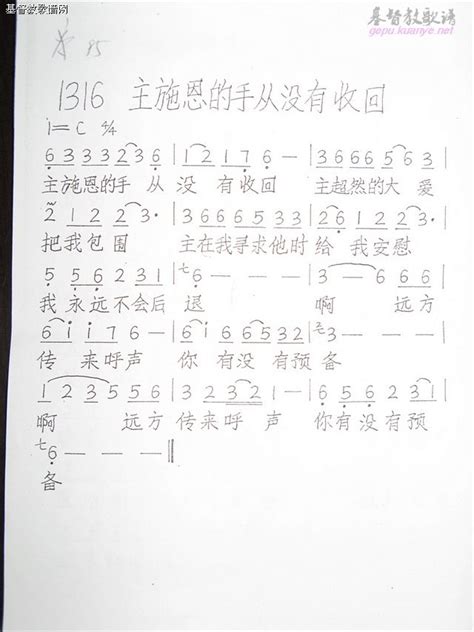 基督教歌谱网
基督教歌谱
gepu.kuanye.net
95
1316 主施恩的手从没有收回
1=C 4/4
6 3 3 3 2 3 6 | 1 2 1 7 6 — | 3 6 6 6 5 6 3
主施恩的手 从 没 有收回 主超然的大 爱
2 1 2 2 3· | 3 6 6 6 5 3 3 | 2 6 1 2 2 3·
把我包围 主在我寻求他时 给 我安慰
5 5 6 2 3 1 | 6 — — — | 3 — 6 6 6
我 永远不会后 退 啊 远方
6 1 1 7 6 — | 6 1 5 3 0 2 | 3 — — —
传 来呼声 你 有没 有预 备
1 2 3 5 5 6 | 3 2 3 2 1 — | 6 5 6 2 3 1
啊 远方 传来呼 声 你有没有预
6 — — —
备